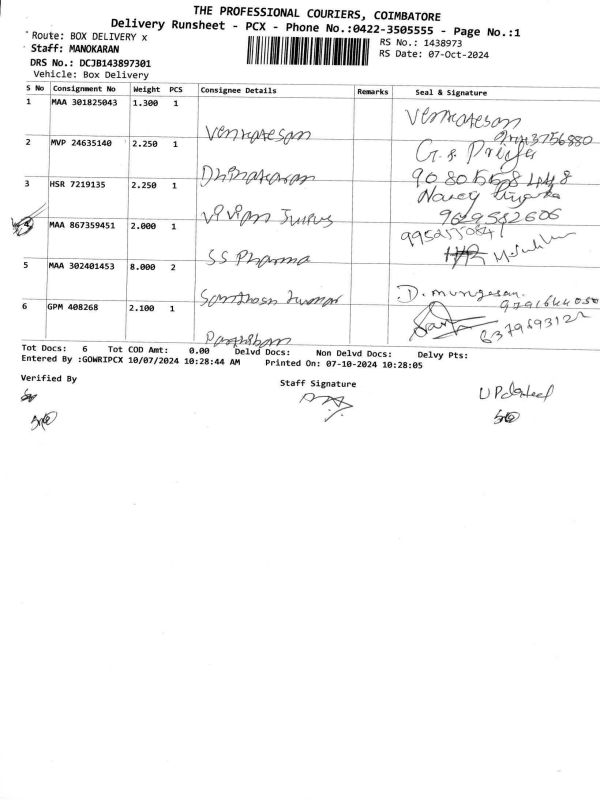 THE PROFESSIONAL COURIERS, COIMBATORE
Delivery Runsheet - PCX - Phone No.:0422-3505555 - Page No.:1
Route: BOX DELIVERY x
RS No.: 1438973
Staff: MANOKARAN
RS Date: 07-Oct-2024
DRS No.: DCJB143897301
Vehicle: Box Delivery
S No Consignment No Weight PCS Consignee Details Remarks Seal & Signature
1 MAA 301825043 1.300 1 Venkatesan Venkatesan
2 MVP 24635140 2.250 1 Dhinakaran G.S Priya
90805568448
3 HSR 7219135 2.250 1 Vivian Nancy
9629582606
4 MAA 867359451 2.000 1 SS Pharma
5 MAA 302401453 8.000 2 Santhosh Kumar D. murugesan.
9791644050
6 GPM 408268 2.100 1 Parthiban
6379693122
Tot Docs: 6 Tot COD Amt: 0.00 Delvd Docs: Non Delvd Docs: Delvy Pts:
Entered By :GOWRIPCX 10/07/2024 10:28:44 AM Printed On: 07-10-2024 10:28:05
Verified By
Staff Signature
UPdated